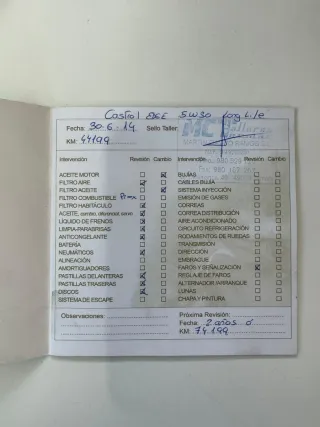 Castrol EDGE 5W30 long life
Fecha: 30-6-14 Sello Taller:
KM: 44199
MC Talleres
Intervención Revisión Cambio Intervención Revisión Cambio
ACEITE MOTOR BUJÍAS
FILTRO AIRE CABLES BUJÍA
FILTRO ACEITE SISTEMA INYECCIÓN
FILTRO COMBUSTIBLE EMISIÓN DE GASES
FILTRO HABITÁCULO CORREAS
ACEITE, cambio, diferencial, servo CORREA DISTRIBUCIÓN
LÍQUIDO DE FRENOS AIRE ACONDICIONADO
LIMPIA-PARABRISAS CIRCUITO REFRIGERACIÓN
ANTICONGELANTE RODAMIENTOS DE RUEDAS
BATERÍA TRANSMISIÓN
NEUMÁTICOS DIRECCIÓN
ALINEACIÓN EMBRAGUE
AMORTIGUADORES FAROS Y SEÑALIZACIÓN
PASTILLAS DELANTERAS REGLAJE DE FAROS
PASTILLAS TRASERAS ALTERNADOR /ARRANQUE
DISCOS LUNAS
SISTEMA DE ESCAPE CHAPA Y PINTURA
Observaciones: Próxima Revisión:
Fecha: 2 años ó
KM: 74.199